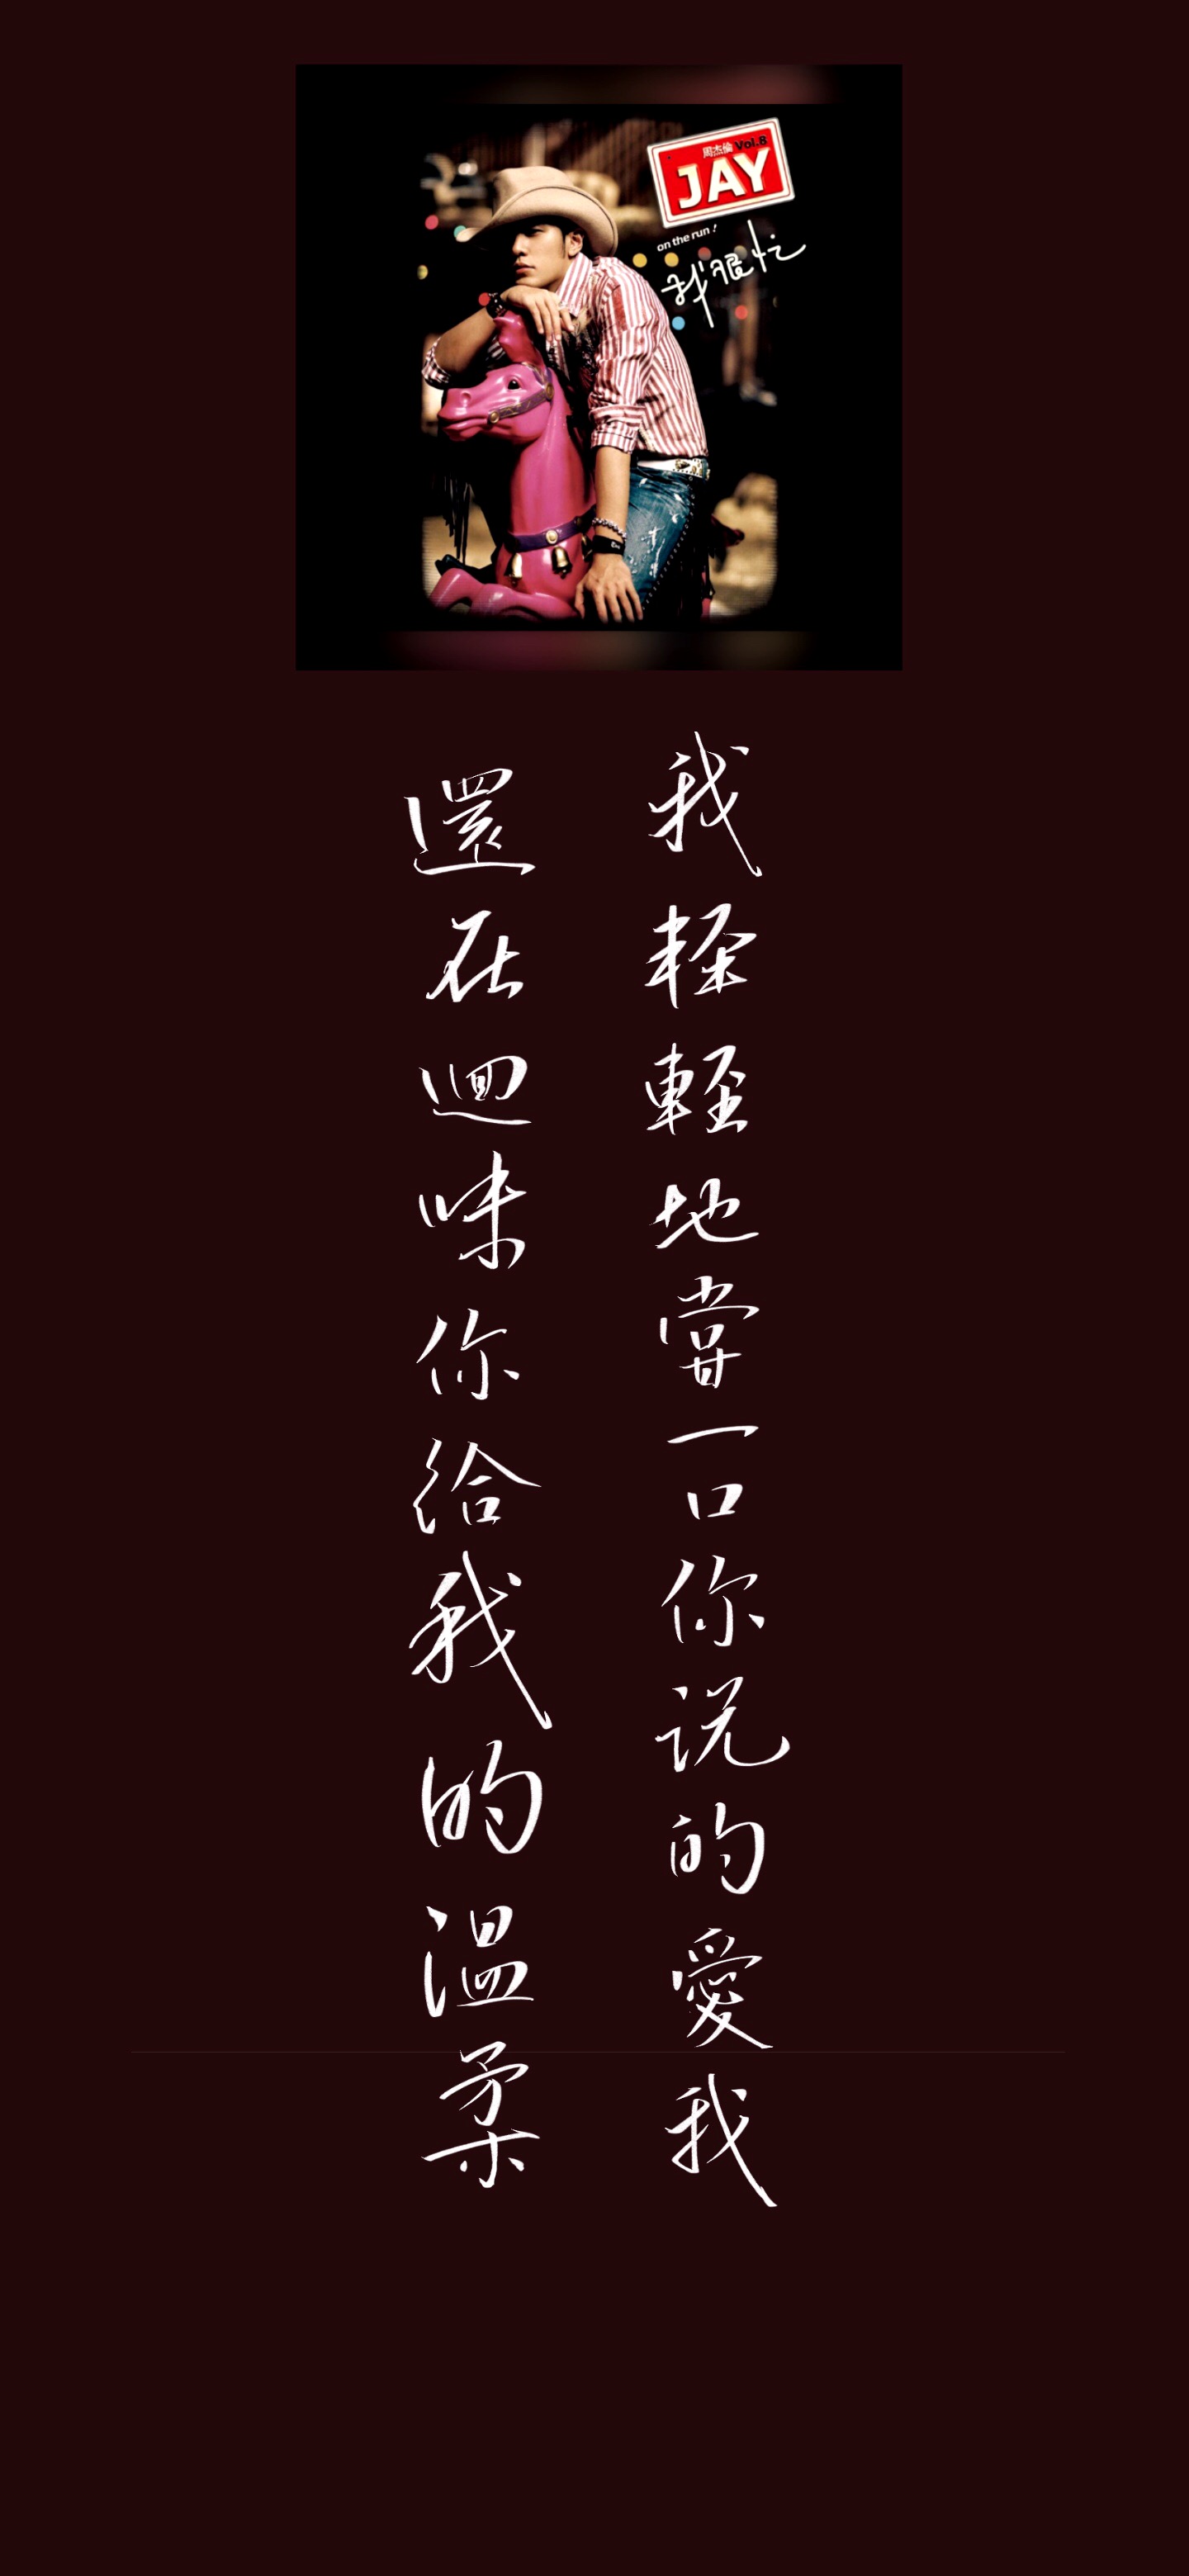 周杰倫 Vol.8
JAY
on the run!
我很忙
我輕輕地嘗一口你说的愛我
還在迴味你給我的溫柔